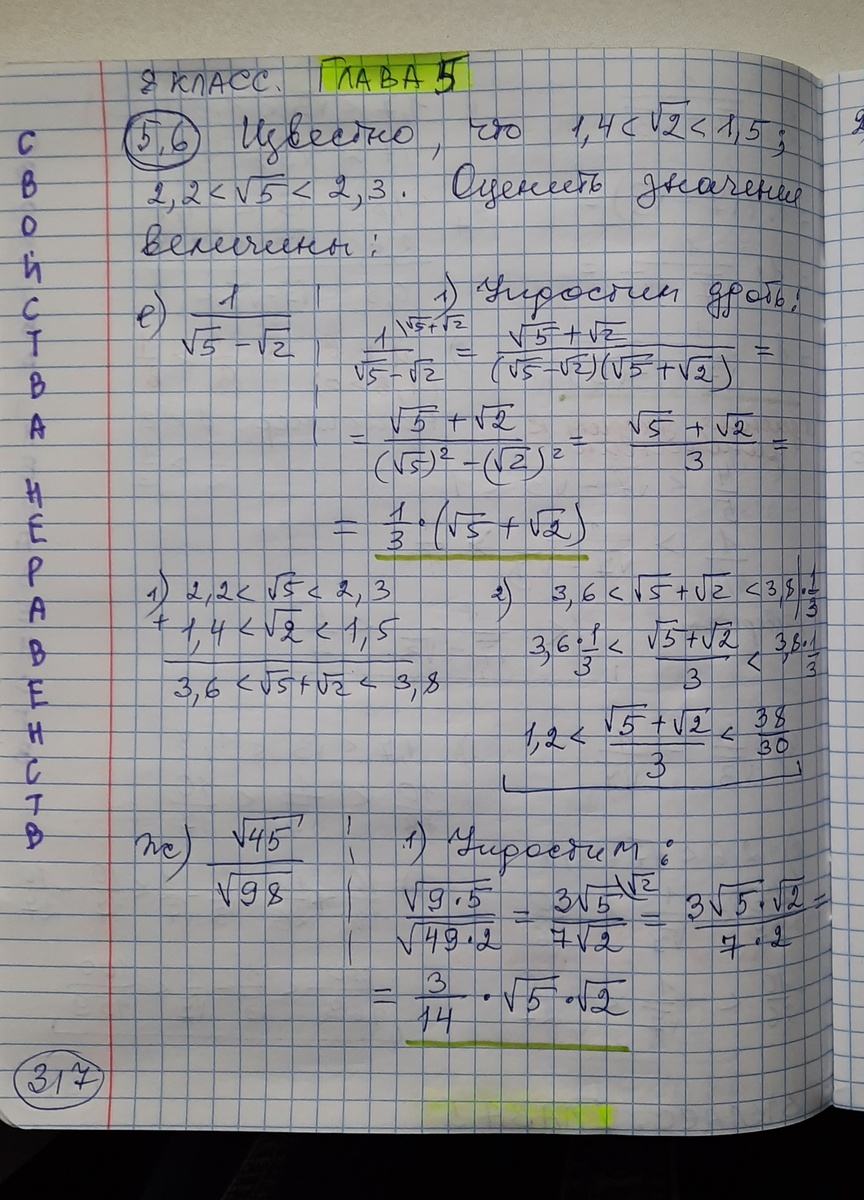 8 КЛАСС. ГЛАВА 5
5,6 Известно, что 1,4 < √2 < 1,5;
2,2 < √5 < 2,3. Оценить значение
величины:
е) 1/(√5 − √2) 1) Упростим дробь:
1\√5+√2/(√5−√2) = (√5+√2)/((√5−√2)(√5+√2)) =
= (√5+√2)/((√5)² − (√2)²) = (√5+√2)/3 =
= 1/3 · (√5+√2)
1) 2,2 < √5 < 2,3
+ 1,4 < √2 < 1,5
3,6 < √5+√2 < 3,8
2) 3,6 < √5+√2 < 3,8 | · 1/3
3,6 · 1/3 < (√5+√2)/3 < 3,8 · 1/3
1,2 < (√5+√2)/3 < 38/30
ж) √45/√98 1) Упростим:
√(9·5)/√(49·2) = 3√5\√2/(7√2) = (3√5·√2)/(7·2) =
= 3/14 · √5 · √2
317
СВОЙСТВА НЕРАВЕНСТВ